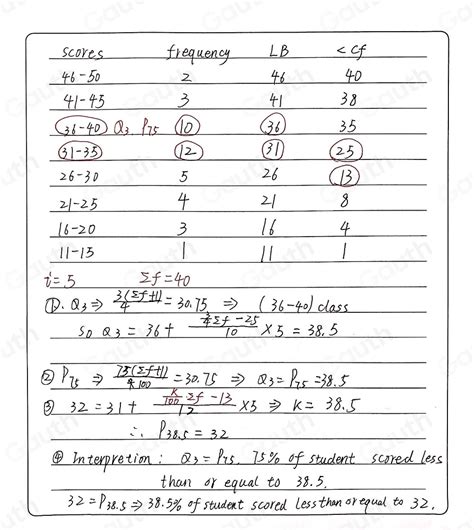 scores frequency LB <cf
46-50 2 46 40
41-45 3 41 38
36-40 Q3. P75 10 36 35
31-35 12 31 25
26-30 5 26 13
21-25 4 21 8
16-20 3 16 4
11-15 1 11 1
i=5 Σf=40
①. Q3 ⇒ 3(Σf+1)/4 = 30.75 ⇒ (36-40) class
so Q3 = 36 + (3/4 Σf - 25)/10 × 5 = 38.5
② P75 ⇒ 75(Σf+1)/100 = 30.75 ⇒ Q3 = P75 = 38.5
③ 32 = 31 + (K/100 Σf - 13)/12 × 5 ⇒ K = 38.5
∴ P38.5 = 32
④ Interpretion: Q3 = P75. 75% of student scored less
than or equal to 38.5.
32 = P38.5 ⇒ 38.5% of student scored less than or equal to 32.